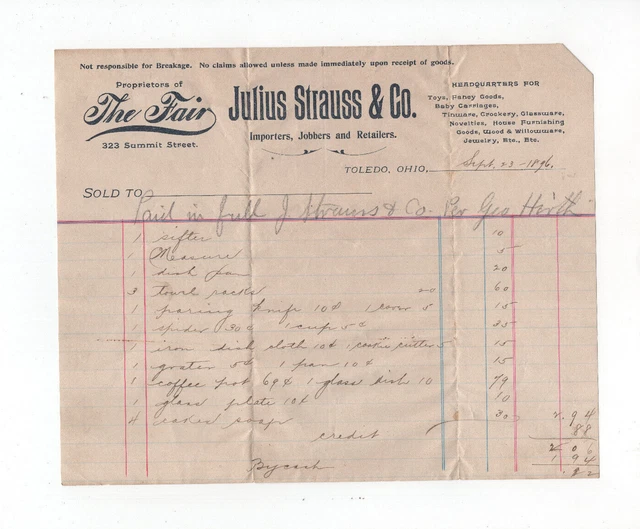 Not responsible for Breakage. No claims allowed unless made immediately upon receipt of goods.
Proprietors of
The Fair
323 Summit Street.
Julius Strauss & Co.
Importers, Jobbers and Retailers.
HEADQUARTERS FOR
Toys, Fancy Goods,
Baby Carriages,
Tinware, Crockery, Glassware,
Novelties, House Furnishing
Goods, Wood & Willowware,
Jewelry, Etc., Etc.
TOLEDO, OHIO, Sept. 23 - 1896.
SOLD TO
Paid in full J Strauss & Co. Per Geo Hirth
1 sifter 10
1 Measure 5
1 dish pan 20
3 towl racks 20 60
1 paring knife 10¢ 1 5 15
1 spider 30¢ 1 cup 5¢ 35
1 iron dish cloth 10¢ 1 cookie cutter 5 15
1 grater 5¢ 1 pan 10¢ 15
1 coffee pot 69¢ 1 glass dish 10 79
1 glass plate 10¢ 10
4 cakes soap 30 2.94
credit 88
2 06
By cash 1 94
.12